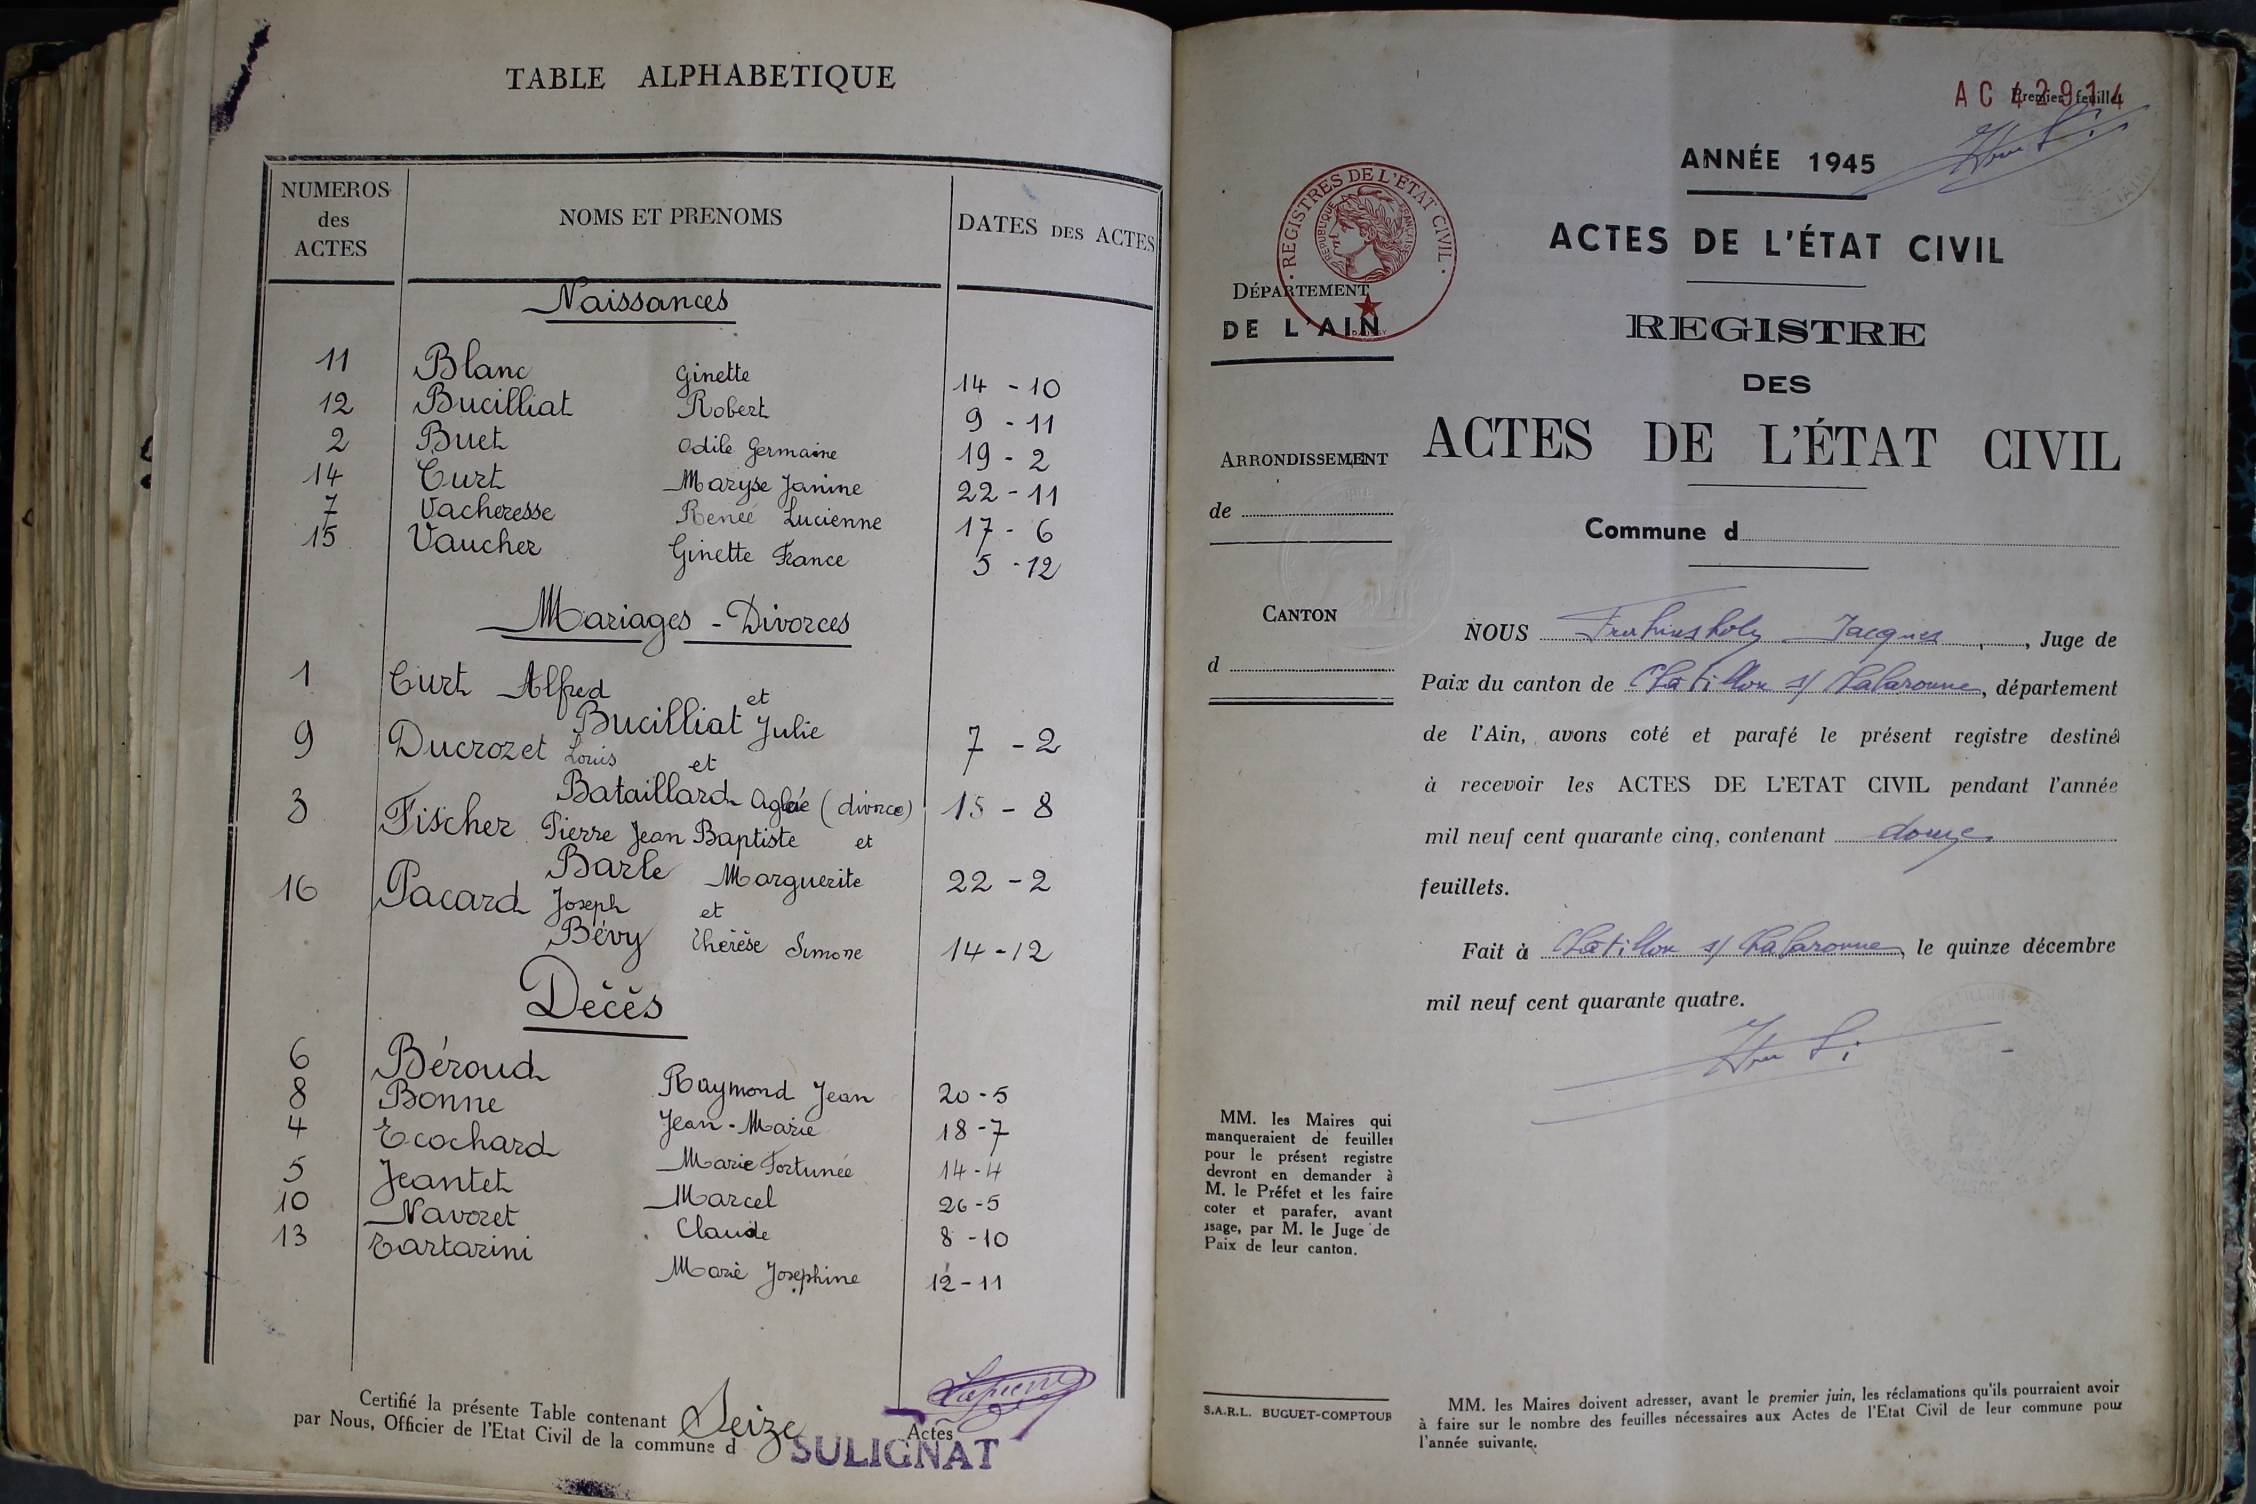 TABLE ALPHABETIQUE
NUMEROS des ACTES
NOMS ET PRENOMS
DATES DES ACTES
Naissances
11 Blanc Ginette 14 - 10
12 Bucilliat Robert 9 - 11
2 Buet Odile Germaine 19 - 2
14 Curt Maryse Janine 22 - 11
7 Vacheresse Renée Lucienne 17 - 6
15 Vaucher Ginette France 5 - 12
Mariages - Divorces
1 Curt Alfred et
Bucilliat Julie 7 - 2
9 Ducrozet Louis et
Bataillard Aglaé (divorce) 15 - 8
3 Fischer Pierre Jean Baptiste et
Barle Marguerite 22 - 2
16 Pacard Joseph et
Bévy Thérèse Simone 14 - 12
Décès
6 Béroud Raymond Jean 20 - 5
8 Bonne Jean - Marie 18 - 7
4 Ecochard Marie Fortunée 14 - 4
5 Jeantet Marcel 26 - 5
10 Navoret Claude 8 - 10
13 Tartarini Marie Joséphine 12 - 11
Certifié la présente Table contenant Seize Actes
par Nous, Officier de l'Etat Civil de la commune d SULIGNAT
AC 42914
Premier feuillet
ANNÉE 1945
REGISTRES DE L'ÉTAT CIVIL
RÉPUBLIQUE FRANÇAISE
ACTES DE L'ÉTAT CIVIL
DÉPARTEMENT
DE L'AIN
REGISTRE
DES
ACTES DE L'ÉTAT CIVIL
ARRONDISSEMENT
de
Commune d
CANTON
d
NOUS Jacques, Juge de
Paix du canton de Châtillon s/ Chalaronne, département
de l'Ain, avons coté et parafé le présent registre destiné
à recevoir les ACTES DE L'ETAT CIVIL pendant l'année
mil neuf cent quarante cinq, contenant douze
feuillets.
Fait à Châtillon s/ Chalaronne, le quinze décembre
mil neuf cent quarante quatre.
MM. les Maires qui
manqueraient de feuilles
pour le présent registre
devront en demander à
M. le Préfet et les faire
coter et parafer, avant
usage, par M. le Juge de
Paix de leur canton.
S.A.R.L. BUGUET-COMPTOUR
MM. les Maires doivent adresser, avant le premier juin, les réclamations qu'ils pourraient avoir
à faire sur le nombre des feuilles nécessaires aux Actes de l'Etat Civil de leur commune pour
l'année suivante.